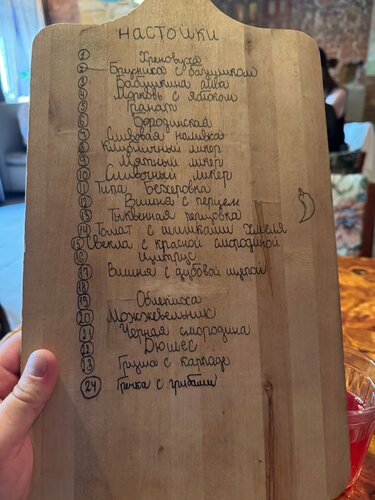 НАСТОЙКИ
1 Хреновуха
2 Брусника с базиликом
3 Бабушкина айва
4 Морковь с яблоком
5 Гранат
6 Бородинская
7 Сливовая наливка
8 Клубничный ликер
9 Мятный ликер
10 Сливочный ликер
11 Типа Бехеровка
12 Вишня с перцем
13 Тыквенная перцовка
14 Томат с шишками хмеля
15 Свекла с красной смородиной
16 Цитрус
17 Вишня с дубовой щепой
18
19 Облепиха
20 Можжевельник
21 Черная смородина
22 Дюшес
23 Груша с каркаде
24 Гречка с грибами